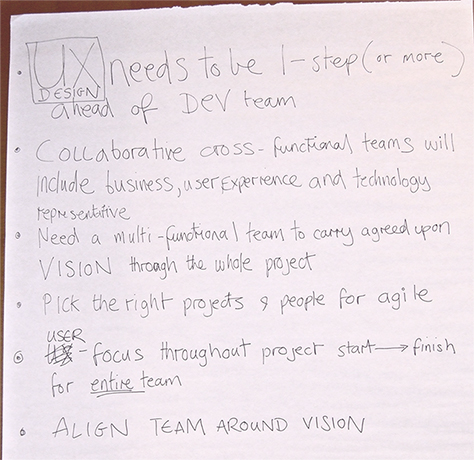 • UX DESIGN needs to be 1-step (or more)
ahead of Dev team
• Collaborative cross-functional teams will
include business, user experience and technology
representative
• Need a multi-functional team to carry agreed upon
VISION through the whole project
• Pick the right projects & people for agile
• USER - focus throughout project start → finish
for entire team
• ALIGN TEAM AROUND VISION